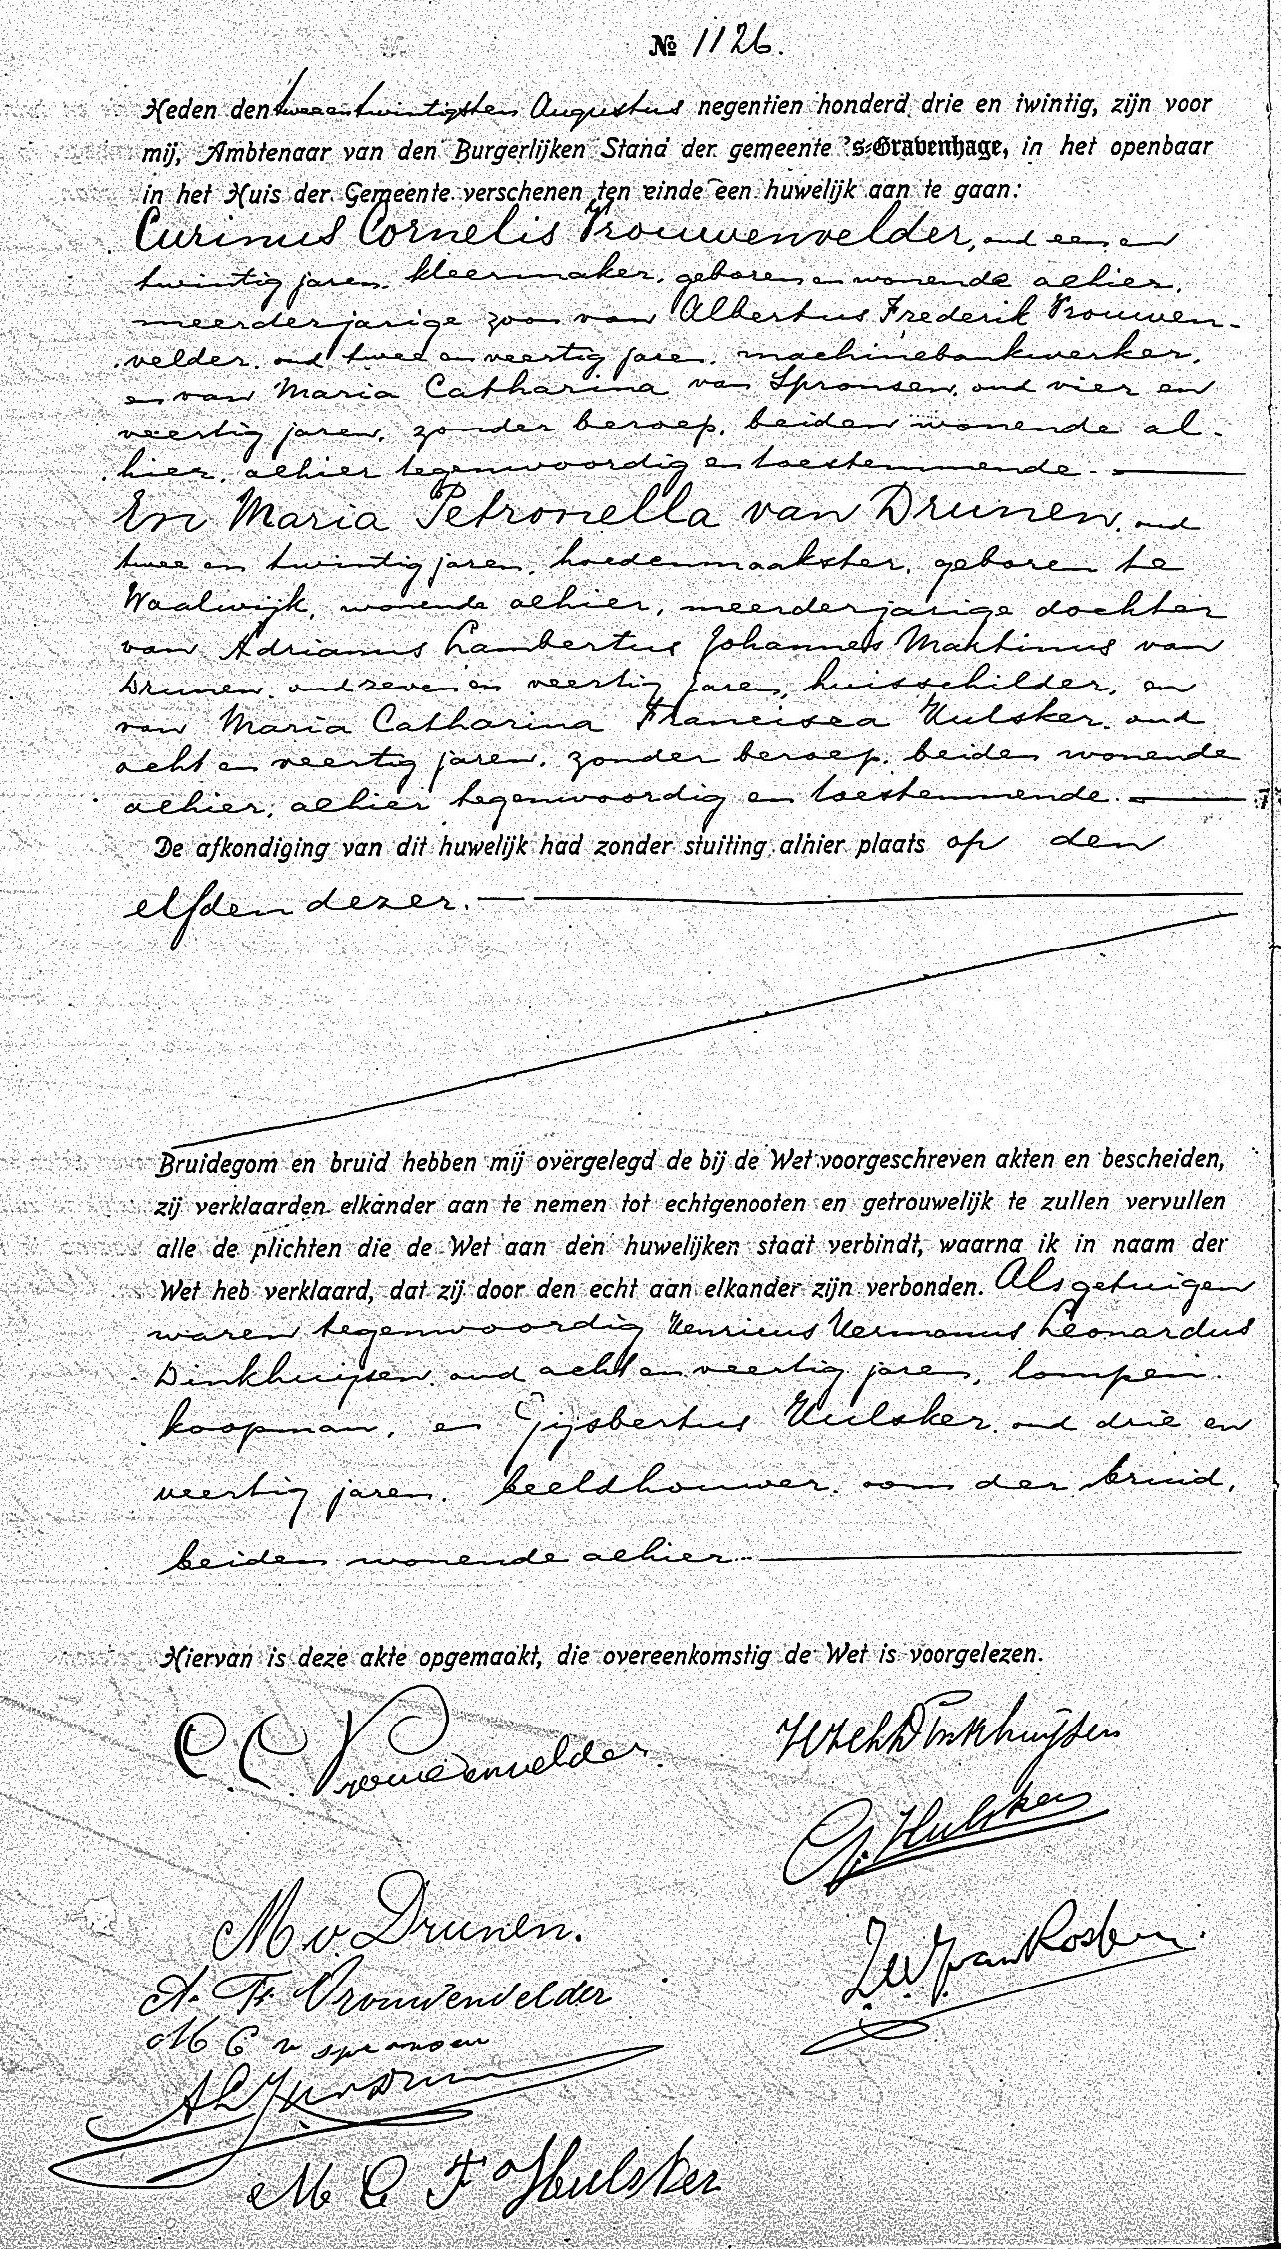 № 1126.
Heden den tweeentwintigsten Augustus negentien honderd drie en twintig, zijn voor
mij, Ambtenaar van den Burgerlijken Stand der gemeente 's-Gravenhage, in het openbaar
in het Huis der Gemeente verschenen ten einde een huwelijk aan te gaan:
Curinus Cornelis Vrouwenvelder, oud een en
twintig jaren, kleermaker, geboren en wonende alhier,
meerderjarige zoon van Albertus Frederik Vrouwen-
velder, oud twee en veertig jaren, machinebankwerker,
en van Maria Catharina van Spronsen, oud vier en
veertig jaren, zonder beroep, beiden wonende al-
hier, alhier tegenwoordig en toestemmende.
En Maria Petronella van Drunen, oud
twee en twintig jaren, hoedenmaakster, geboren te
Waalwijk, wonende alhier, meerderjarige dochter
van Adrianus Lambertus Johannes Martinus van
Drunen, oud zeven en veertig jaren, huisschilder, en
van Maria Catharina Francisca Hulsker, oud
acht en veertig jaren, zonder beroep, beiden wonende
alhier, alhier tegenwoordig en toestemmende.
De afkondiging van dit huwelijk had zonder stuiting alhier plaats op den
elfden dezer.
Bruidegom en bruid hebben mij overgelegd de bij de Wet voorgeschreven akten en bescheiden,
zij verklaarden elkander aan te nemen tot echtgenooten en getrouwelijk te zullen vervullen
alle de plichten die de Wet aan den huwelijken staat verbindt, waarna ik in naam der
Wet heb verklaard, dat zij door den echt aan elkander zijn verbonden. Als getuigen
waren tegenwoordig Henricus Hermanus Leonardus
Dinkhuijsen, oud acht en veertig jaren, lompen-
koopman, en Gijsbertus Hulsker, oud drie en
veertig jaren, beeldhouwer, oom der bruid,
beiden wonende alhier.
Hiervan is deze akte opgemaakt, die overeenkomstig de Wet is voorgelezen.
C. C. Vrouwenvelder.
HHL Dinkhuijsen
G. Hulsker
M. v. Drunen.
A. F. Vrouwenvelder
M C v spronsen
M C F Hulsker